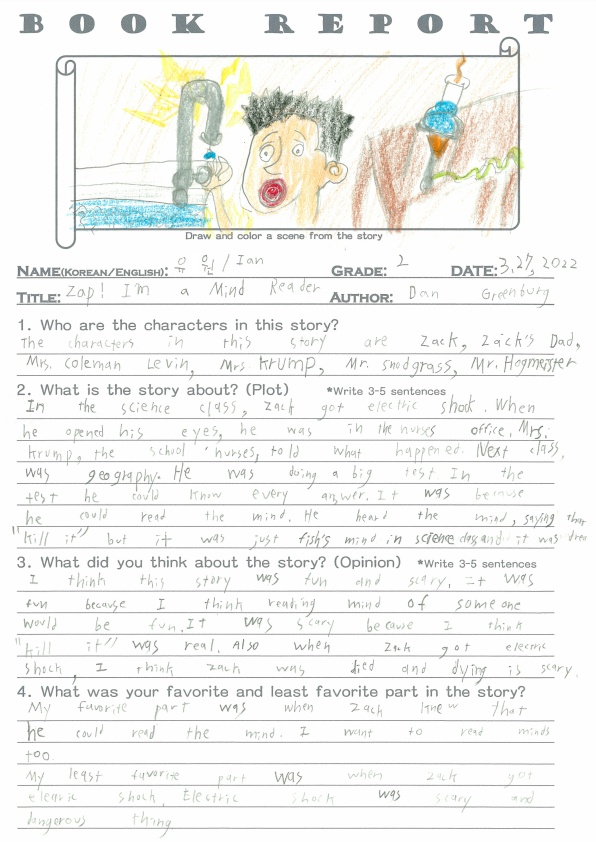 BOOK REPORT
Draw and color a scene from the story
NAME(KOREAN/ENGLISH): 유 원 / Ian GRADE: 2 DATE: 3, 27, 2022
TITLE: Zap! I'm a Mind Reader AUTHOR: Dan Greenburg
1. Who are the characters in this story?
The characters in this story are Zack, Zack's Dad,
Mrs. Coleman Levin, Mrs Krump, Mr. Snodgrass, Mr. Hogmeister
2. What is the story about? (Plot) *Write 3-5 sentences
In the science class, Zack got electric shock. When
he opened his eyes, he was in the nurses office. Mrs.
Krump, the school nurses, told what happened. Next class,
was geography. He was doing a big test In the
test he could know every answer. It was because
he could read the mind. He heard the mind, saying that
"kill it" but it was just fish's mind in science class and it was
3. What did you think about the story? (Opinion) *Write 3-5 sentences
I think this story was fun and scary. It was
fun because I think reading mind of someone
would be fun. It was scary because I think
"kill it" was real. Also when Zack got electric
shock, I think Zack was died and dying is scary.
4. What was your favorite and least favorite part in the story?
My favorite part was when Zack knew that
he could read the mind. I want to read minds
too.
My least favorite part was when Zack got
elearic shock. Electric shock was scary and
dangerous thing